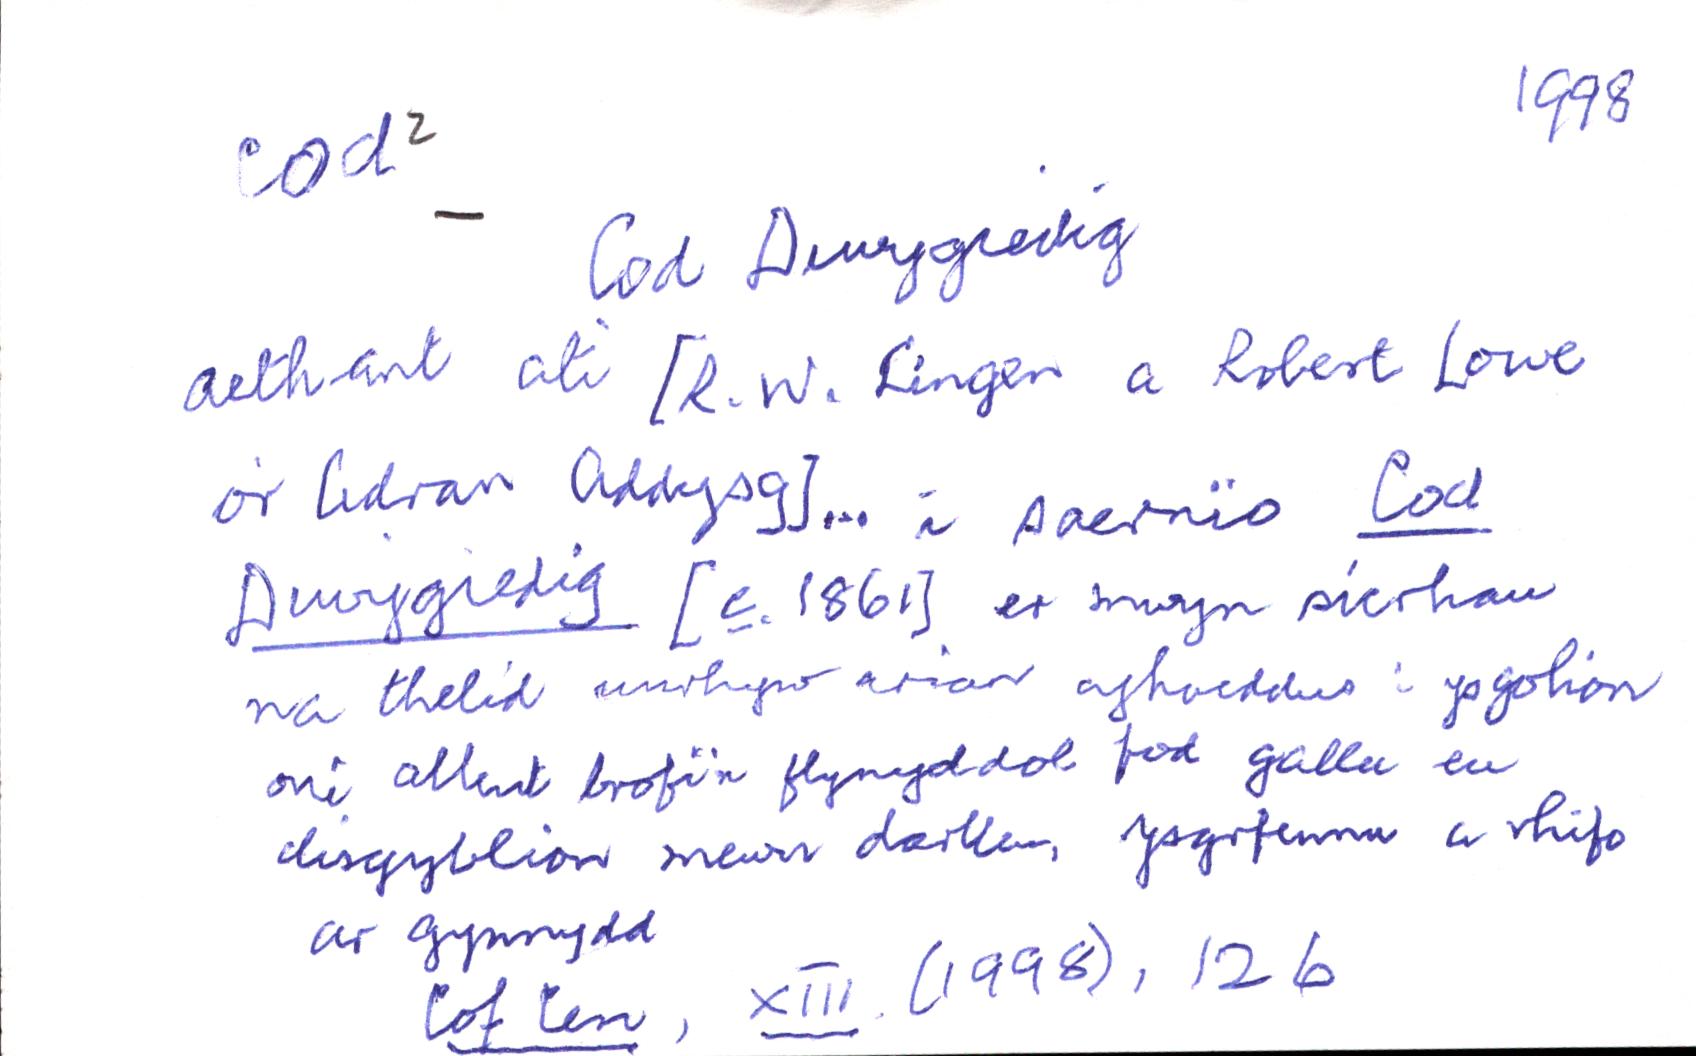 1998
cod²
—
Cod Diwygiedig
aethant ati [R. W. Lingen a Robert Lowe
o'r Adran Addysg]... i saernïo Cod
Diwygiedig [c. 1861] er mwyn sicrhau
na thelid unrhyw arian cyhoeddus i ysgolion
oni allent brofi'n flynyddol fod gallu eu
disgyblion mewn darllen, ysgrifennu a rhifo
ar gynnydd
Cof Cen, XIII. (1998), 126